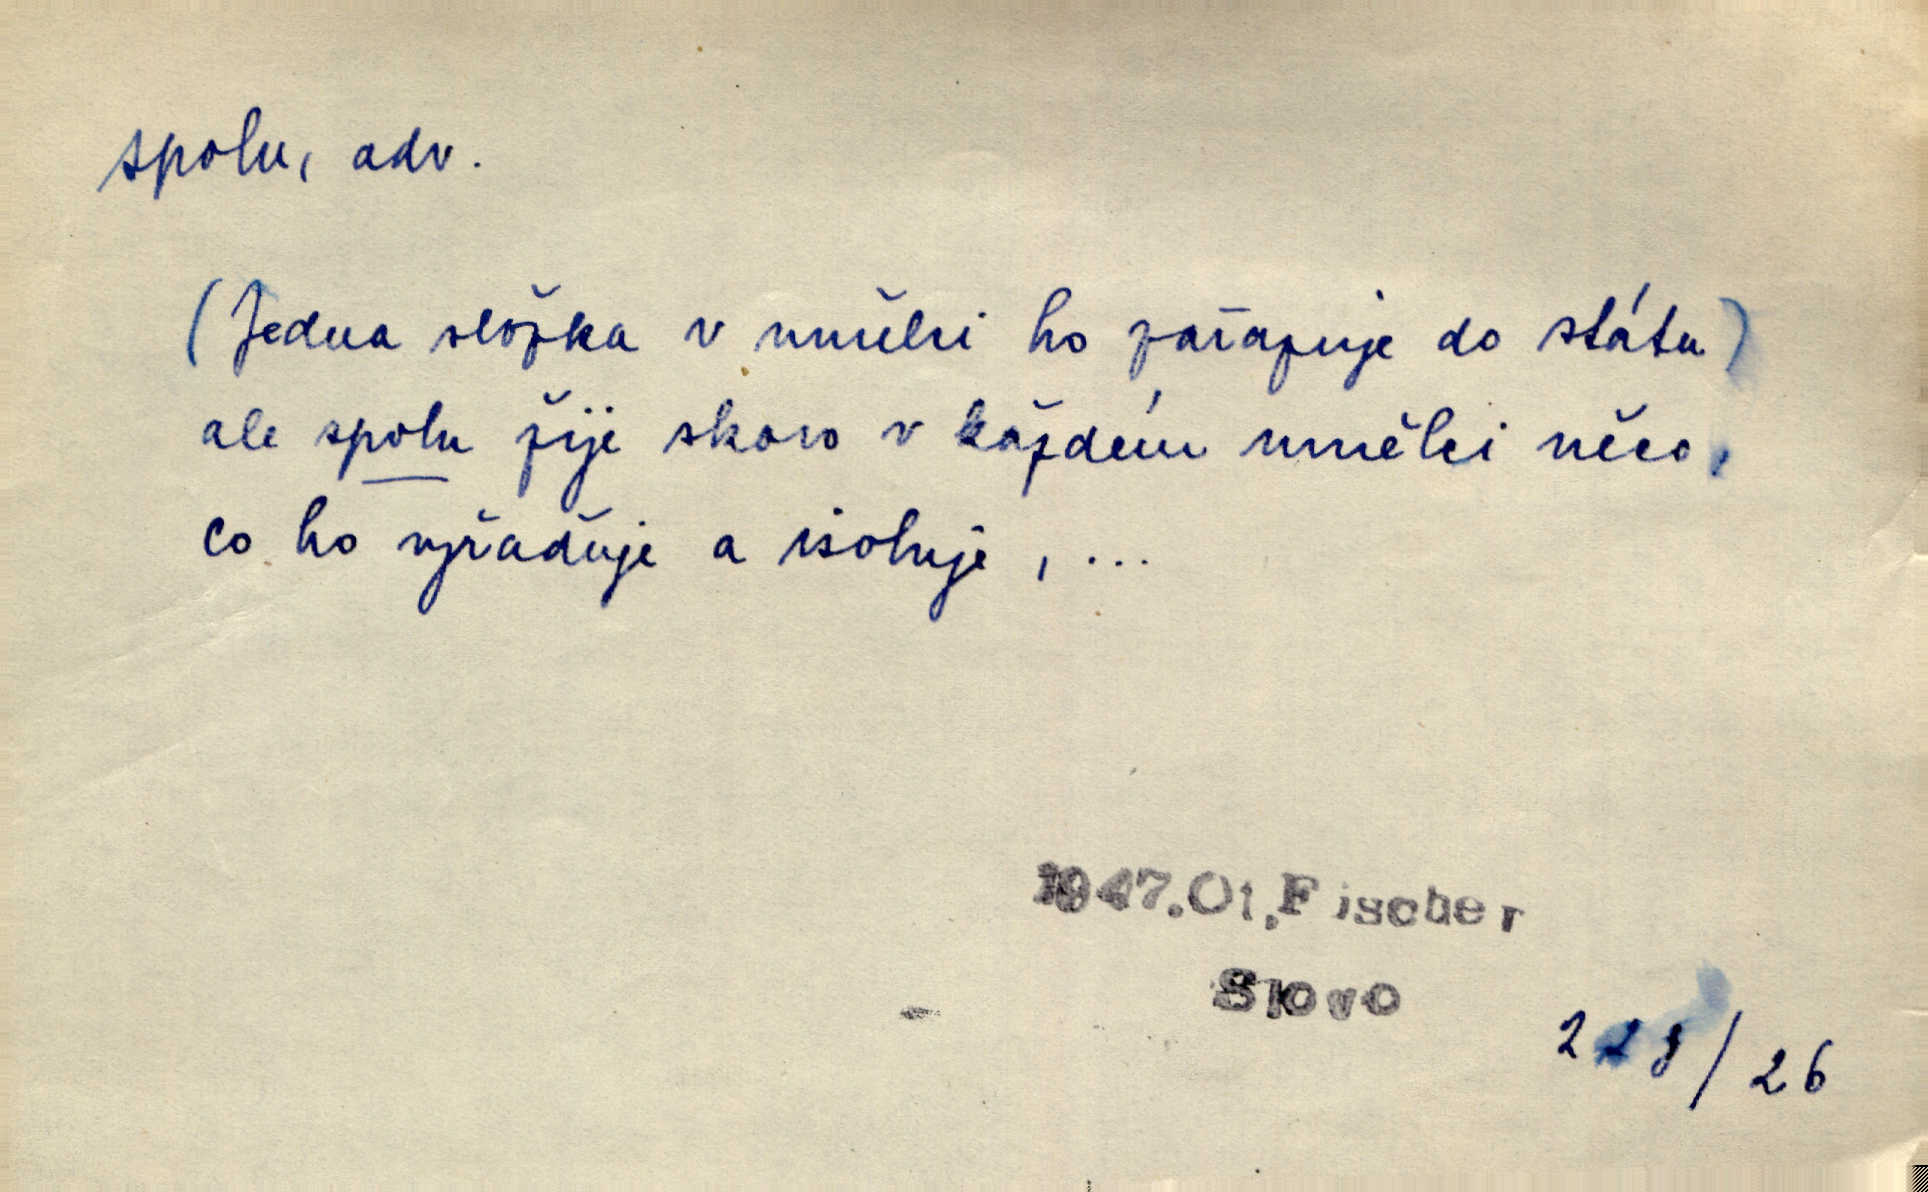 spolu, adv.
(Jedna složka v umělci ho zařazuje do státu)
ale spolu žije skoro v každém umělci něco,
co ho vyřaďuje a isoluje, ...
1947.Ot.Fischer
Slovo
223/26